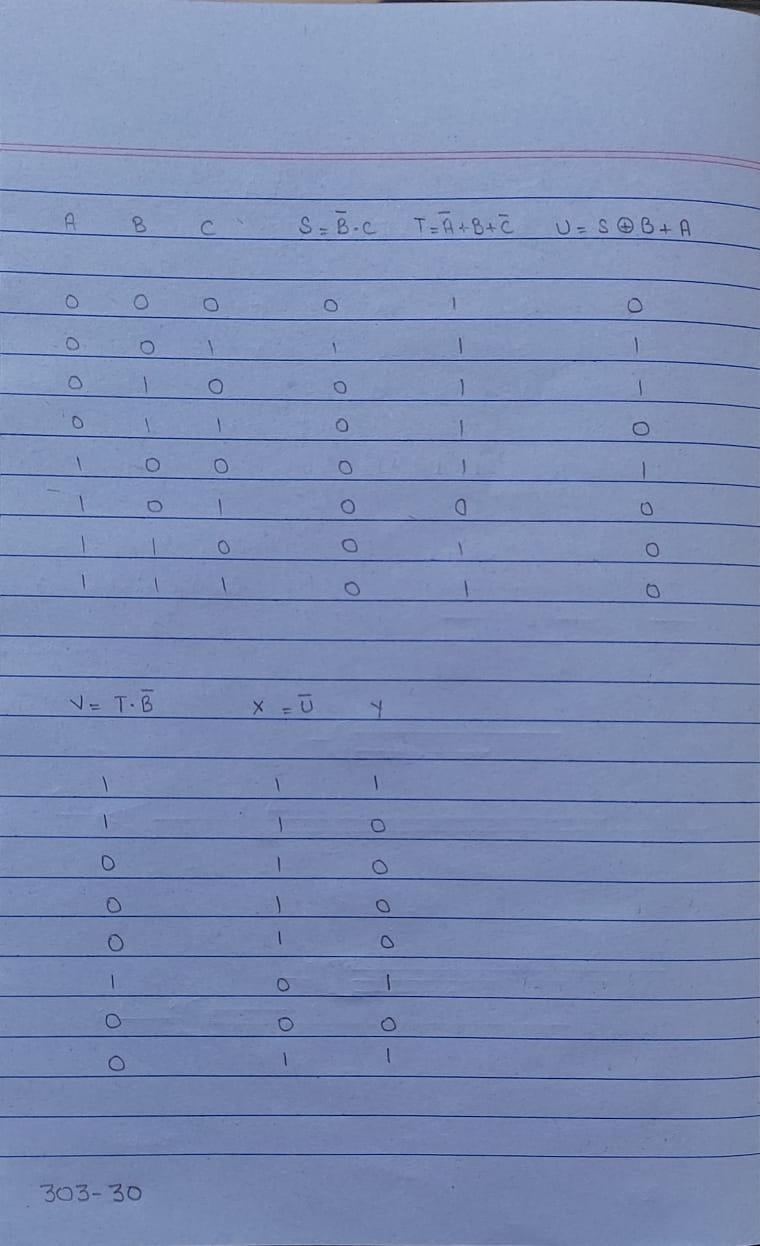 A B C S = B̅·C T = A̅+B+C̅ U = S ⊕ B + A
0 0 0 0 1 0
0 0 1 1 1 1
0 1 0 0 1 1
0 1 1 0 1 0
1 0 0 0 1 1
1 0 1 0 0 0
1 1 0 0 1 0
1 1 1 0 1 0
V = T·B̅ X = U̅ Y
1 1 1
1 1 0
0 1 0
0 1 0
0 1 0
1 0 1
0 0 0
0 1 1
303-30